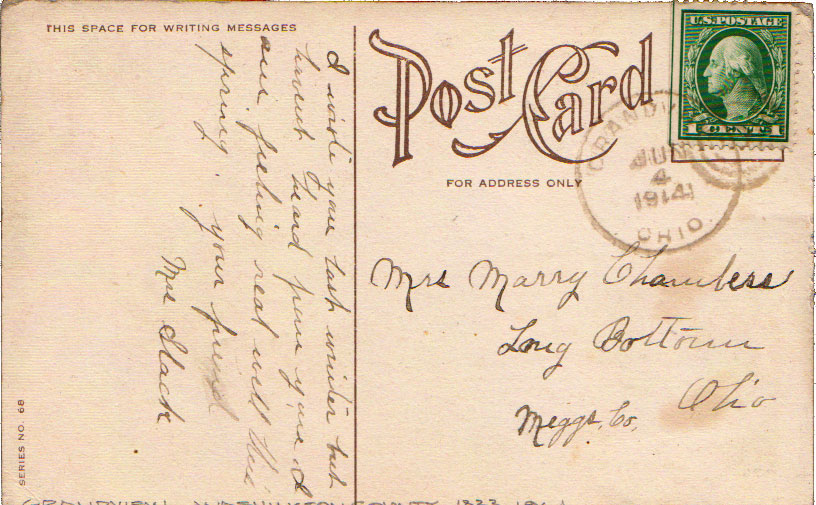 THIS SPACE FOR WRITING MESSAGES
I wrote you last winter but
havent heard from you I
am feeling real well this
spring. your friend
Mrs Stack
SERIES NO. 68
Post Card
FOR ADDRESS ONLY
U.S. POSTAGE
1 CENT 1
GRANDV
JUN
4
1914
OHIO
Mrs Marry Chambers
Long Bottom
Ohio
Meggs, Co,
GRANDVIEW WASHINGTON COUNTY